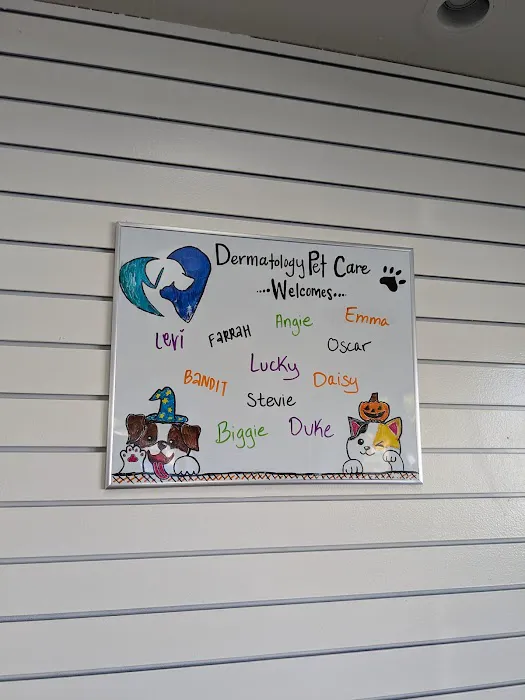 Dermatology Pet Care
....Welcomes....
Levi FARRAH Angie Emma
Oscar
Lucky
BANDIT Daisy
Stevie
Biggie Duke